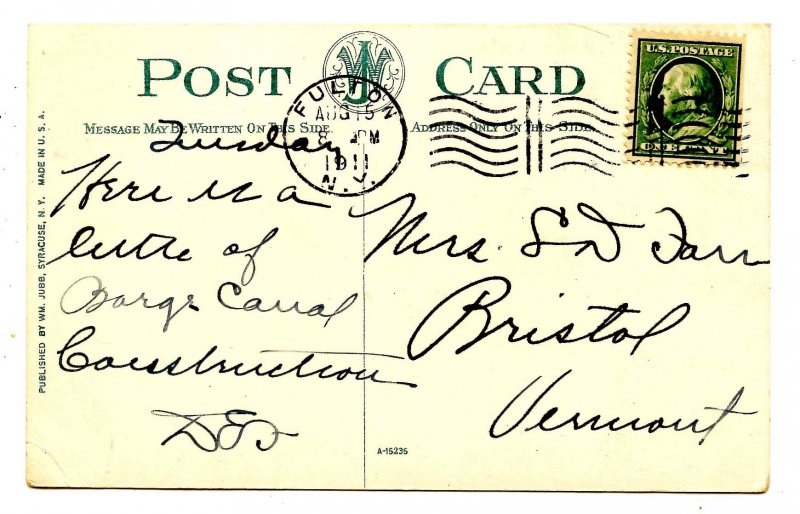 POST CARD
WJ
MESSAGE MAY BE WRITTEN ON THIS SIDE.
ADDRESS ONLY ON THIS SIDE.
U.S. POSTAGE
ONE CENT
FULTON
AUG 15
8 PM
1911
N.Y.
Tuesday
Here is a
little of
Barge Canal
Construction
Mrs. S D Farr
Bristol
Vermont
A-15235
PUBLISHED BY WM. JUBB, SYRACUSE, N. Y. MADE IN U. S. A.